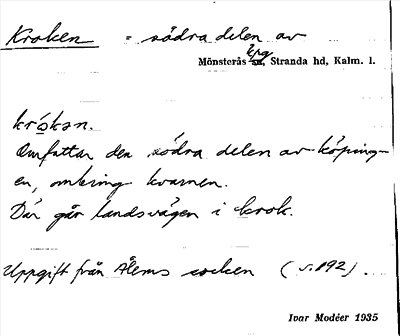 Kroken = södra delen av
köpg
Mönsterås sn, Stranda hd, Kalm. l.
krókən.
Omfattar den södra delen av köping-
en, omkring kvarnen.
Där går landsvägen i krok.
Uppgift från Ålems socken (s. 192).
Ivar Modéer 1935